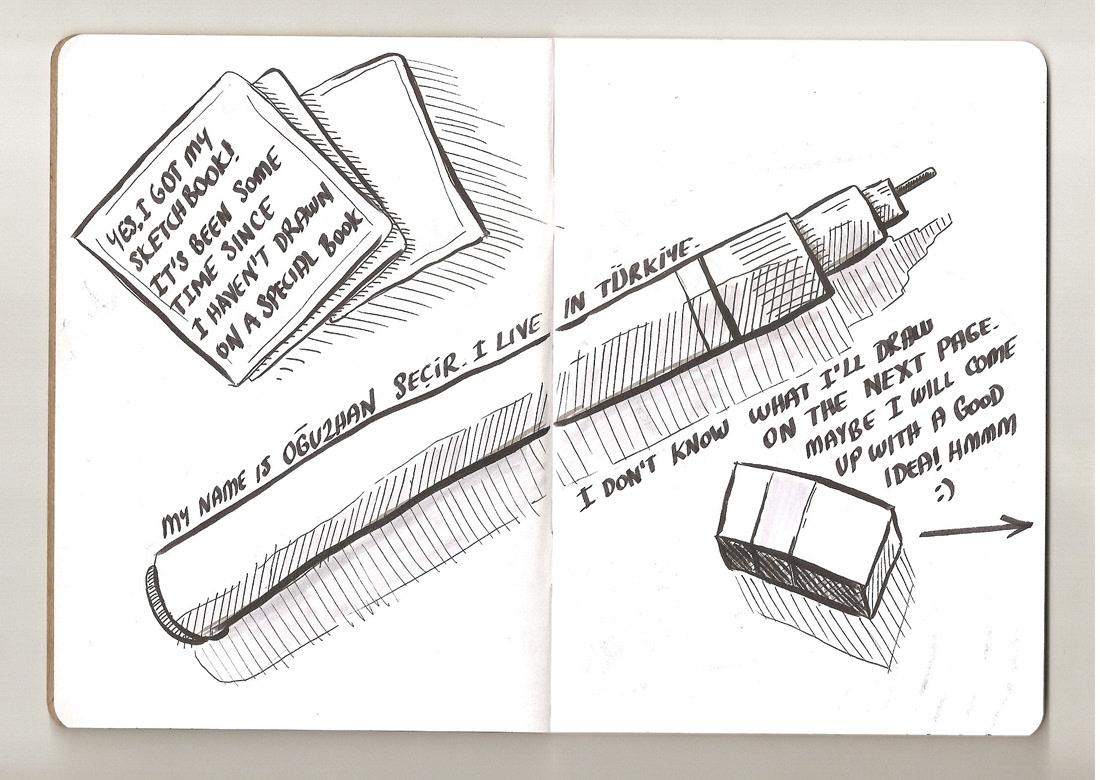 YES, I GOT MY
SKETCHBOOK!
IT'S BEEN SOME
TIME SINCE
I HAVEN'T DRAWN
ON A SPECIAL BOOK
MY NAME IS OĞUZHAN SEÇİR. I LIVE IN TÜRKİYE.
I DON'T KNOW WHAT I'LL DRAW
ON THE NEXT PAGE.
MAYBE I WILL COME
UP WITH A GOOD
IDEA! HMMM
:)